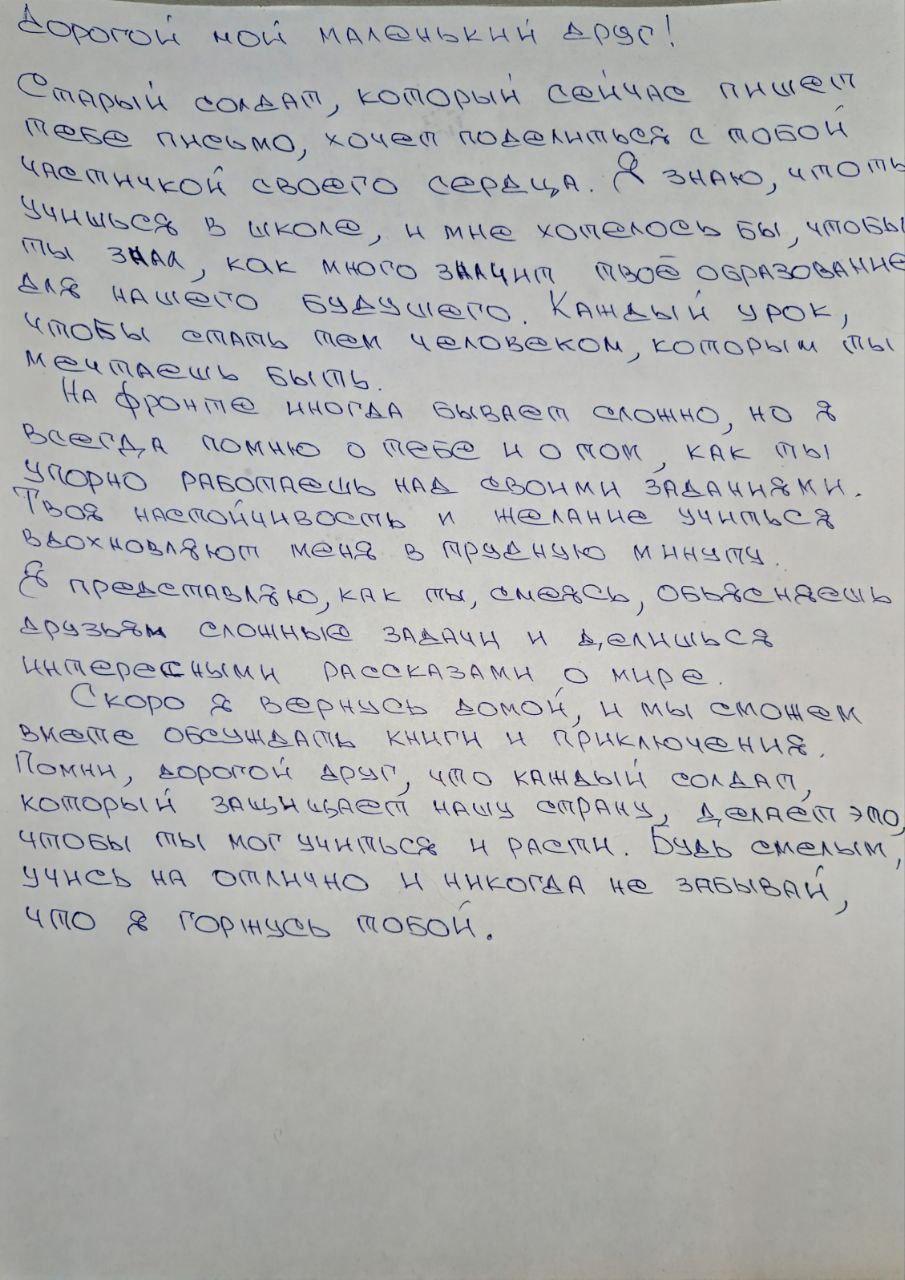 Дорогой мой маленький друг!
Старый солдат, который сейчас пишет
тебе письмо, хочет поделиться с тобой
частичкой своего сердца. Я знаю, что ты
учишься в школе, и мне хотелось бы, чтобы
ты знал, как много значит твоё образование
для нашего будушего. Каждый урок,
чтобы стать тем человеком, которым ты
мечтаешь быть.
На фронте иногда бывает сложно, но я
всегда помню о тебе и о том, как ты
упорно работаешь над своими заданиями.
Твоя настойчивость и желание учиться
вдохновляют меня в трудную минуту.
Я представляю, как ты, смеясь, обьясняешь
друзьям сложные задачи и делишься
интересными рассказами о мире.
Скоро я вернусь домой, и мы сможем
вместе обсуждать книги и приключения.
Помни, дорогой друг, что каждый солдат,
который защищает нашу страну, делает это,
чтобы ты мог учиться и расти. Будь смелым,
учись на отлично и никогда не забывай,
что я горжусь тобой.